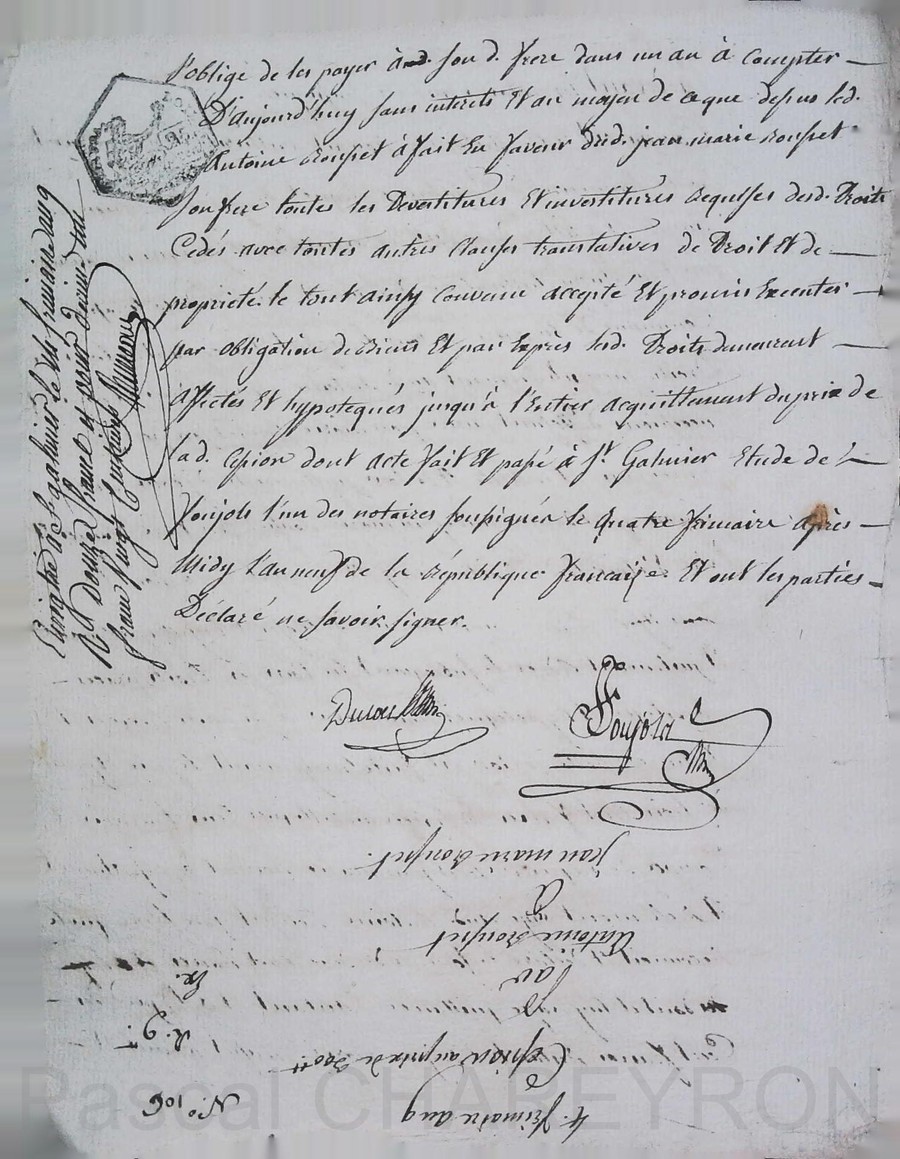 s'oblige de les payer à son d. frere dans un an à compter
D'aujourd'huy sans interets Et au moyen de ce que dessus led.
Antoine rousset à fait En faveur dud. jean marie rousset
son frere toutes les Devestitures Et investitures requises desd. Droits
Cedés avec toutes autres Clauses translatives de Droit Et de
proprieté. le tout ainsy convenu accepté Et promis Executer
par obligation de biens Et par Exprès lesd. Droits demeurent
affectés Et hypotequés jusqu'à l'Entier acquittement du prix de
lad. Cession dont acte fait Et passé à St. Galmier Etude de
Poujols l'un des notaires soussignés le quatre frimaire après
Midy L'an neuf de la république francaise. Et ont les parties
Déclaré ne savoir signer.
Poujols
Enregistré à St galmier le six frimaire an 9
R. Douze francs et pour decime un
franc vingt centimes
4. frimaire an 9
N.° 106
Cession au prix de 300 tt
R. 9.
Par
Antoine Rousset
A
jean marie rousset.
Pascal CHABEYRON